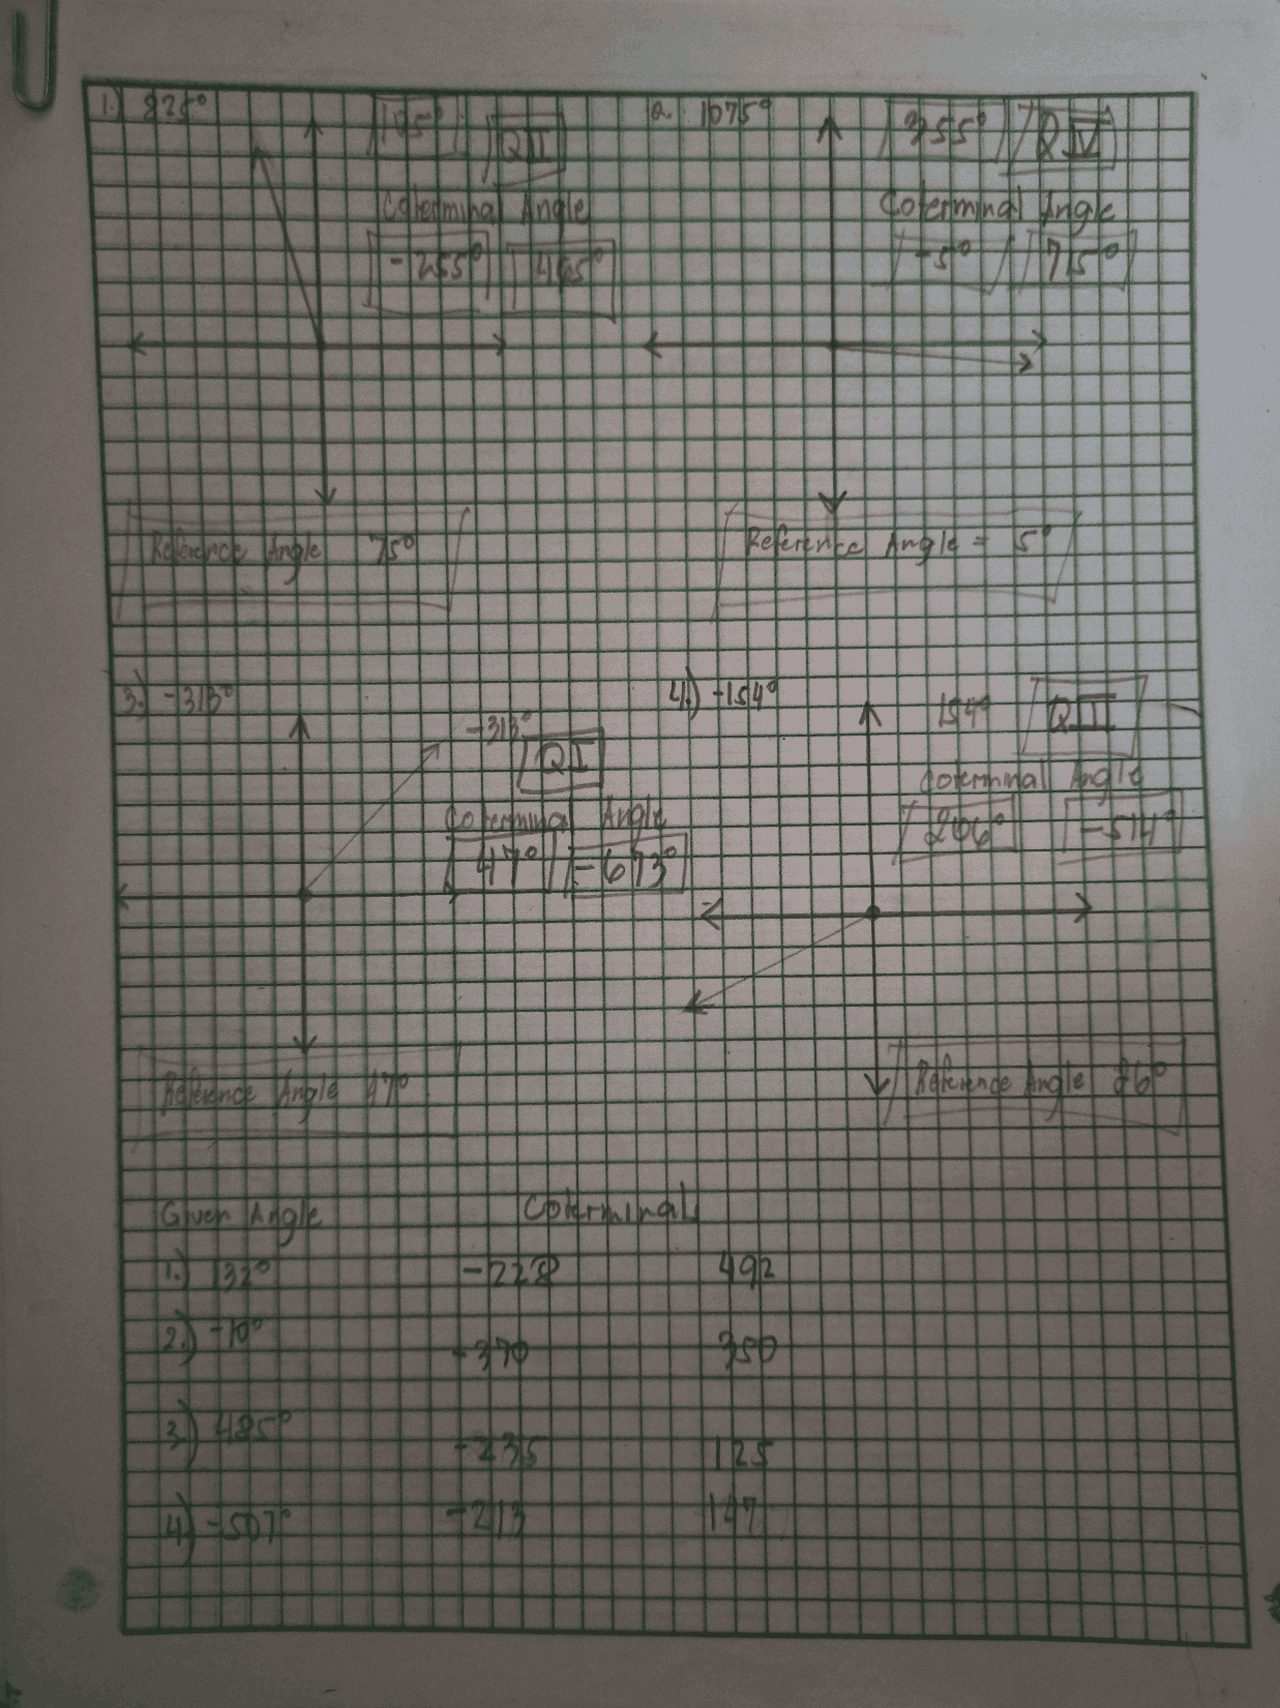 1.) 825° 105° QII
Coterminal Angle
-255° 465°
Reference Angle 75°
2. 1075° 355° QIV
Coterminal Angle
-5° 715°
Reference Angle = 5°
3.) -313°
-313°
QI
Coterminal Angle
47° -673°
Reference Angle 47°
4.) -154° 154° QIII
Coterminal Angle
206° -514°
Reference Angle 26°
Given Angle Coterminal
1.) 132° -228 492
2.) -10° -370 350
3.) 485° -235 125
4.) -507° -213 147